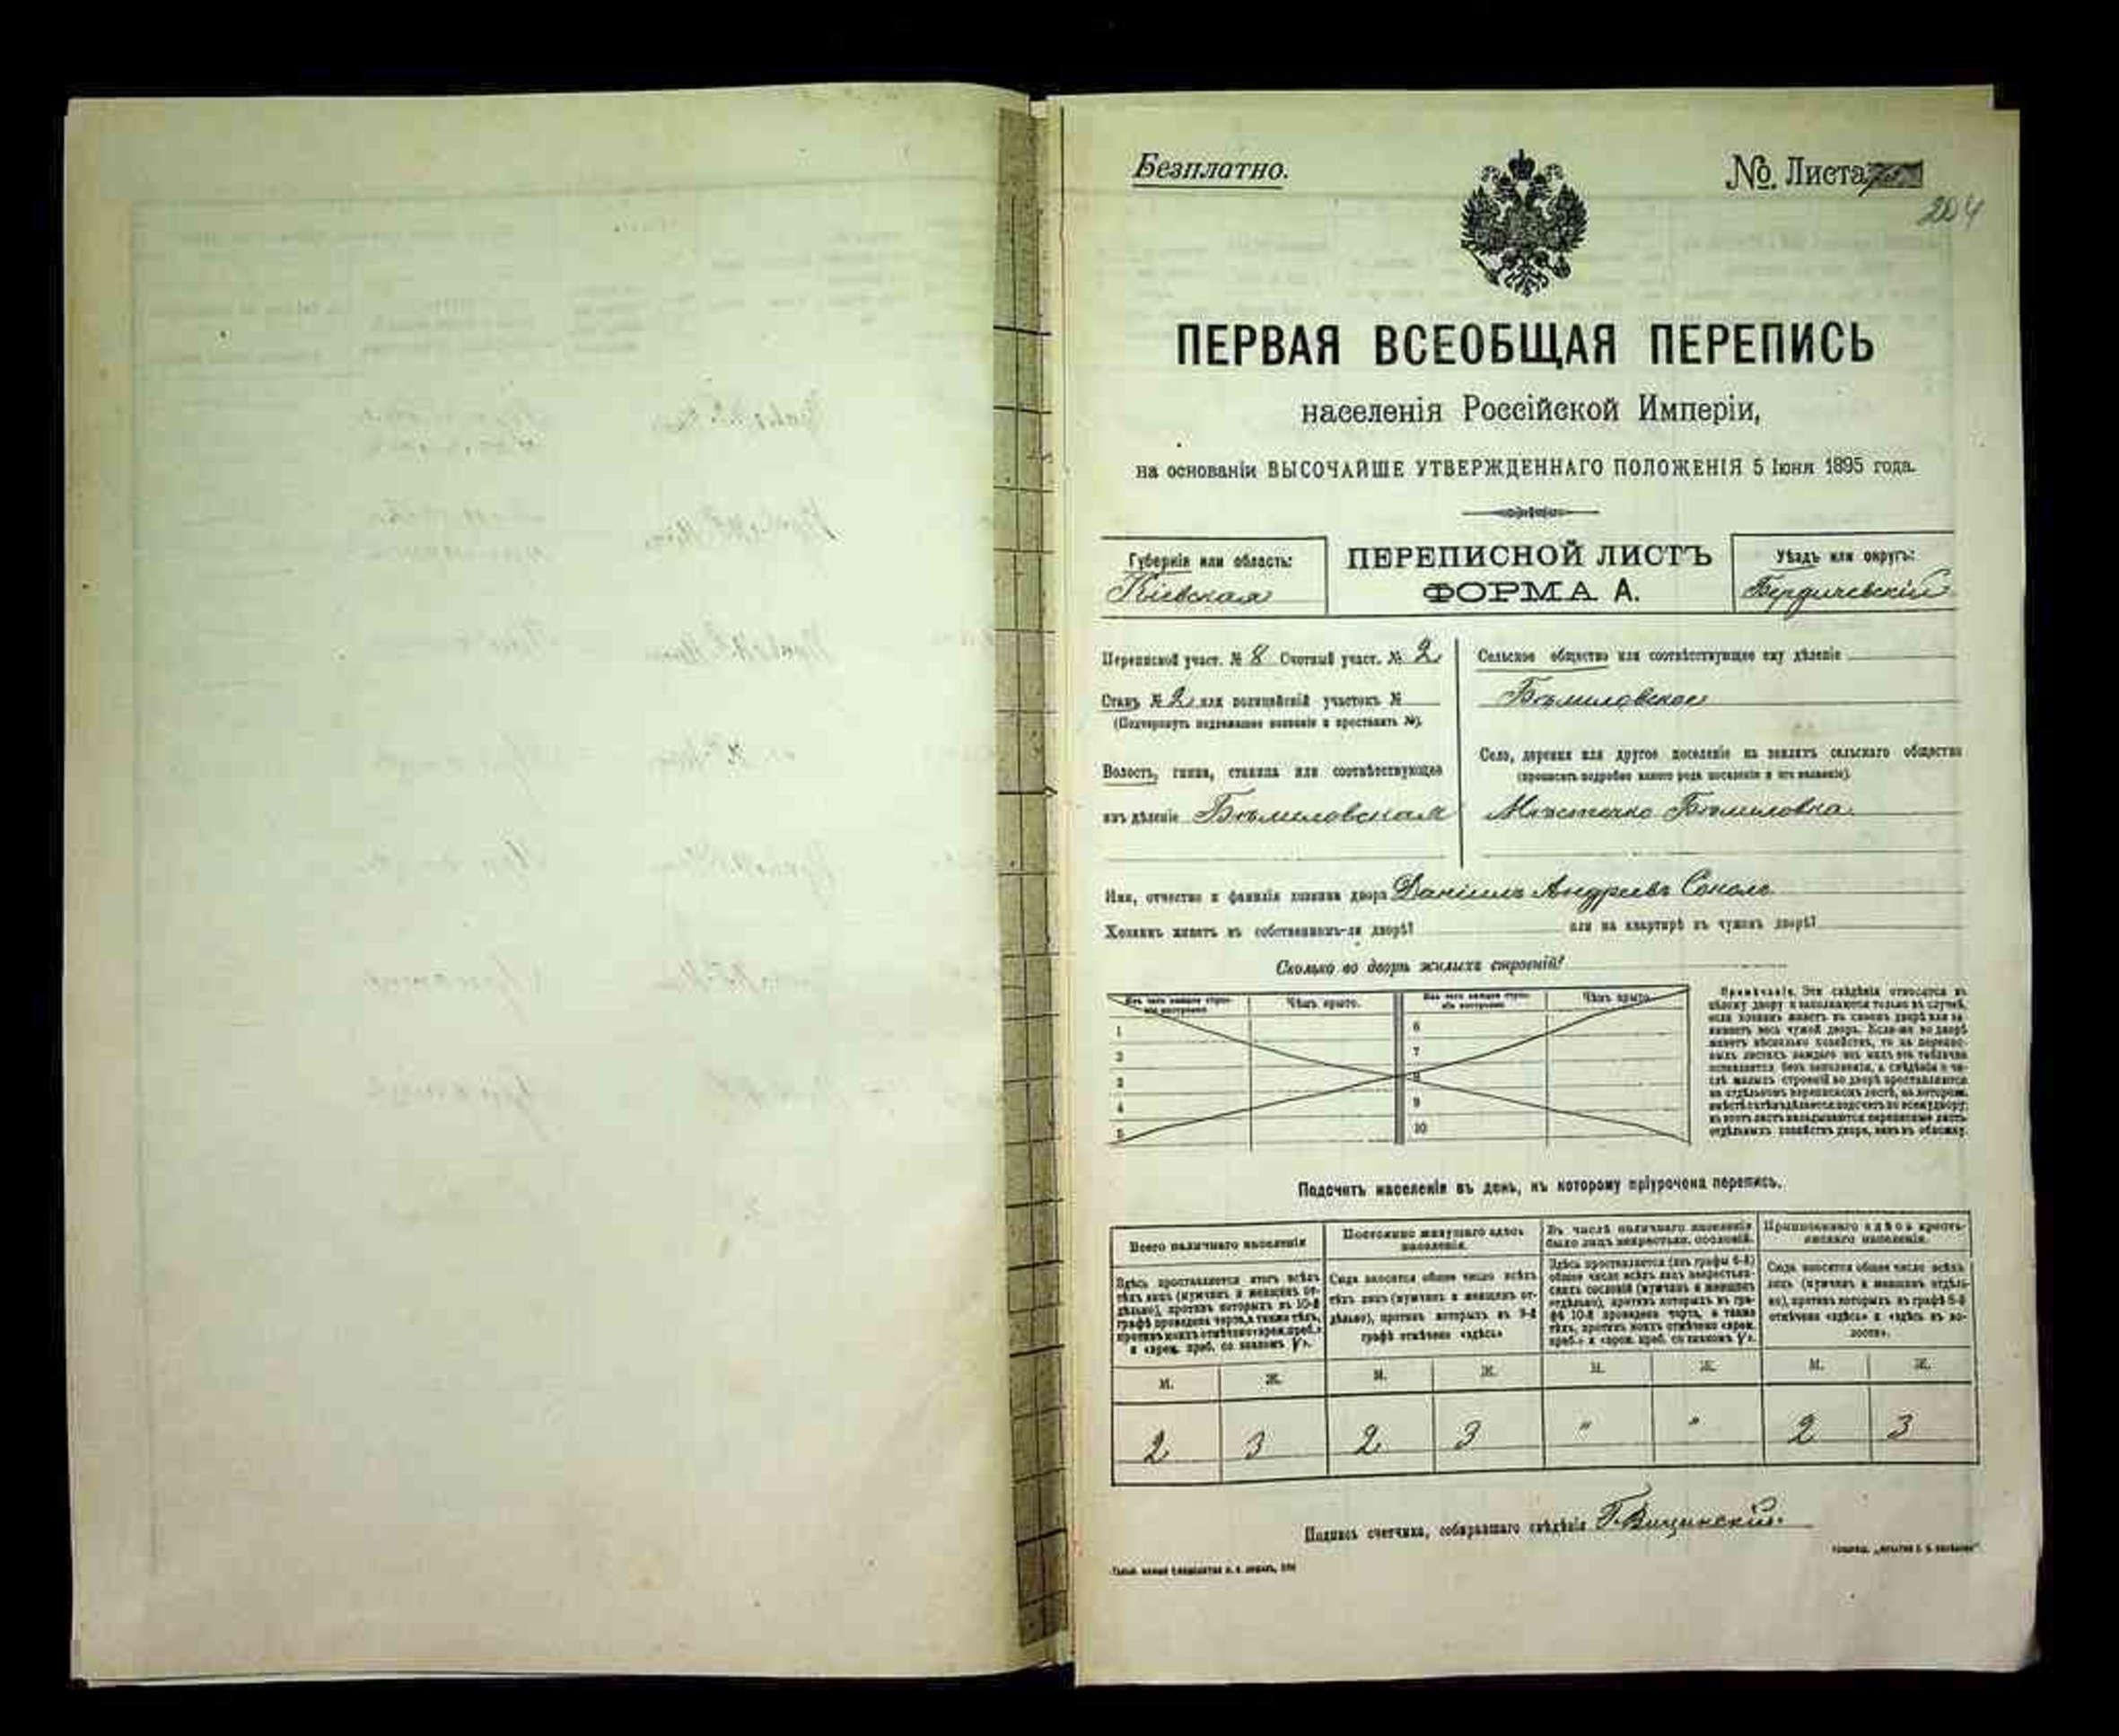 Безплатно.
№. Листа
204
ПЕРВАЯ ВСЕОБЩАЯ ПЕРЕПИСЬ
населенія Россійской Имперіи,
на основаніи ВЫСОЧАЙШЕ УТВЕРЖДЕННАГО ПОЛОЖЕНІЯ 5 Іюня 1895 года.
Губернія или область:
Кіевская
ПЕРЕПИСНОЙ ЛИСТЪ
ФОРМА А.
Уѣздъ или округъ:
Бердичевскій
Переписной участ. № 8 Счетный участ. № 2
Станъ № 2 или полицейскій участокъ №
(Подчеркнуть подлежащее названіе и проставить №).
Волость, гмина, станица или соотвѣтствующее
имъ дѣленіе Бѣлиловская
Сельское общество или соотвѣтствующее ему дѣленіе
Бѣлиловское
Село, деревня или другое поселеніе на земляхъ сельскаго общества
(прописать подробно какого рода поселеніе и его названіе).
Мѣстечко Бѣлиловка
Имя, отчество и фамилія хозяина двора Даніилъ Андреевъ Соколъ
Хозяинъ живетъ въ собственномъ-ли дворѣ? или на квартирѣ въ чужомъ дворѣ?
Сколько во дворѣ жилыхъ строеній?
Изъ чего каждое строе-
ніе построено. Чѣмъ крыто. Изъ чего каждое строе-
ніе построено. Чѣмъ крыто.
1 6
2 7
3 8
4 9
5 10
Примѣчаніе. Эти свѣдѣнія относятся къ
цѣлому двору и заполняются только въ случаѣ,
если хозяинъ живетъ въ своемъ дворѣ или за-
нимаетъ весь чужой дворъ. Если-же во дворѣ
живетъ нѣсколько хозяйствъ, то на перепис-
ныхъ листахъ каждаго изъ нихъ эта табличка
оставляется безъ заполненія, а свѣдѣнія о чи-
слѣ жилыхъ строеній во дворѣ проставляются
на отдѣльномъ переписномъ листѣ, на которомъ
вмѣстѣ съ тѣмъ дѣлается подсчетъ по всему двору;
въ этотъ листъ вкладываются переписные листы
отдѣльныхъ хозяйствъ двора, какъ въ обложку.
Подсчетъ населенія въ день, къ которому пріурочена перепись.
Всего наличнаго населенія
Здѣсь проставляется итогъ всѣхъ
тѣхъ лицъ (мужчинъ и женщинъ от-
дѣльно), противъ которыхъ въ 10-й
графѣ проведена черта, а также тѣхъ,
противъ коихъ отмѣчено «врем. преб.»
и «врем. преб. со знакомъ V».
Постоянно живущаго здѣсь
населенія.
Сюда вносится общее число всѣхъ
тѣхъ лицъ (мужчинъ и женщинъ от-
дѣльно), противъ которыхъ въ 9-й
графѣ отмѣчено «здѣсь»
Въ числѣ наличнаго населенія
было лицъ некрестьян. сословій.
Здѣсь проставляется (изъ графы 6-й)
общее число всѣхъ лицъ некрестьян-
скихъ сословій (мужчинъ и женщинъ
отдѣльно), противъ которыхъ въ гра-
фѣ 10-й проведена черта, а также
тѣхъ, противъ коихъ отмѣчено «врем.
преб.» и «врем. преб. со знакомъ V».
Приписаннаго здѣсь кресть-
янскаго населенія.
Сюда вносится общее число всѣхъ
лицъ (мужчинъ и женщинъ отдѣль-
но), противъ которыхъ въ графѣ 8-й
отмѣчено «здѣсь» и «здѣсь въ во-
лости».
М. Ж. М. Ж. М. Ж. М. Ж.
2 3 2 3 " " 2 3
Подпись счетчика, собиравшаго свѣдѣнія Г. Вицинскій